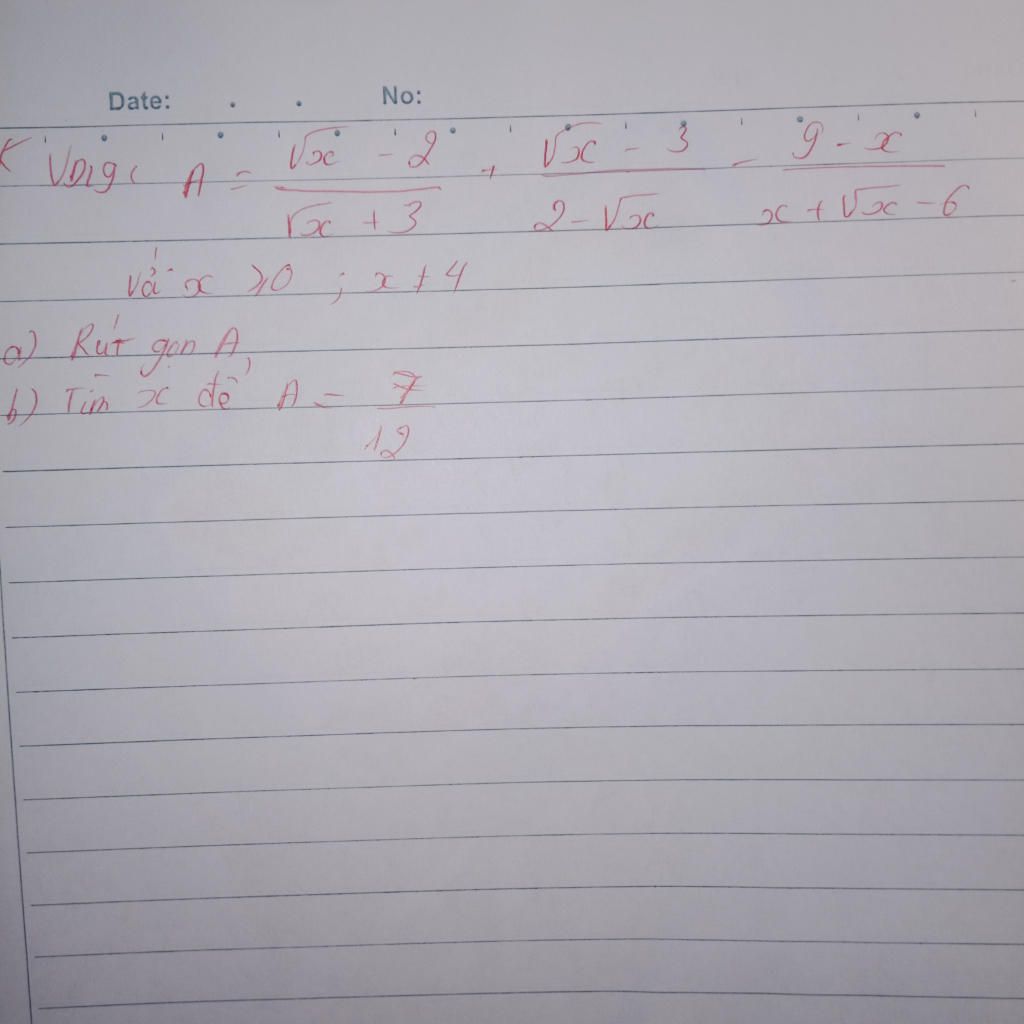 Date: . . No:
A = \frac{\sqrt{x} - 2}{\sqrt{x} + 3} + \frac{\sqrt{x} - 3}{2 - \sqrt{x}} - \frac{9 - x}{x + \sqrt{x} - 6}
với x ⩾ 0 ; x ≠ 4
a) Rút gọn A
b) Tìm x để A = \frac{7}{12}